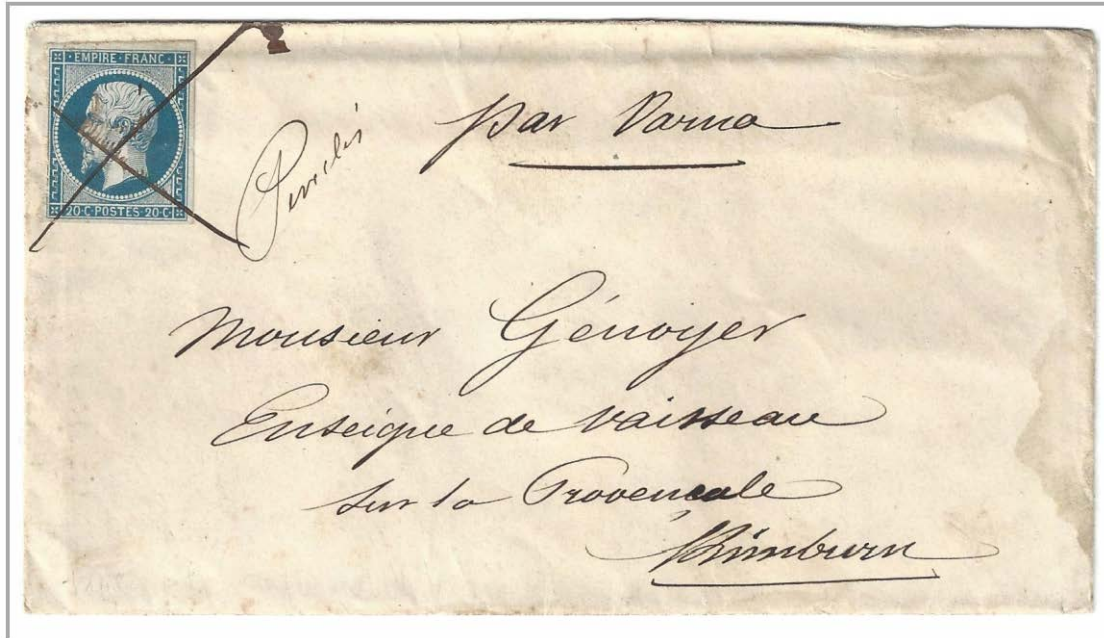 EMPIRE · FRANC ·
20 · C · POSTES 20 · C ·
par Varna
Monsieur Génoyer
Enseigne de vaisseau
sur la Provencale
Kimburn